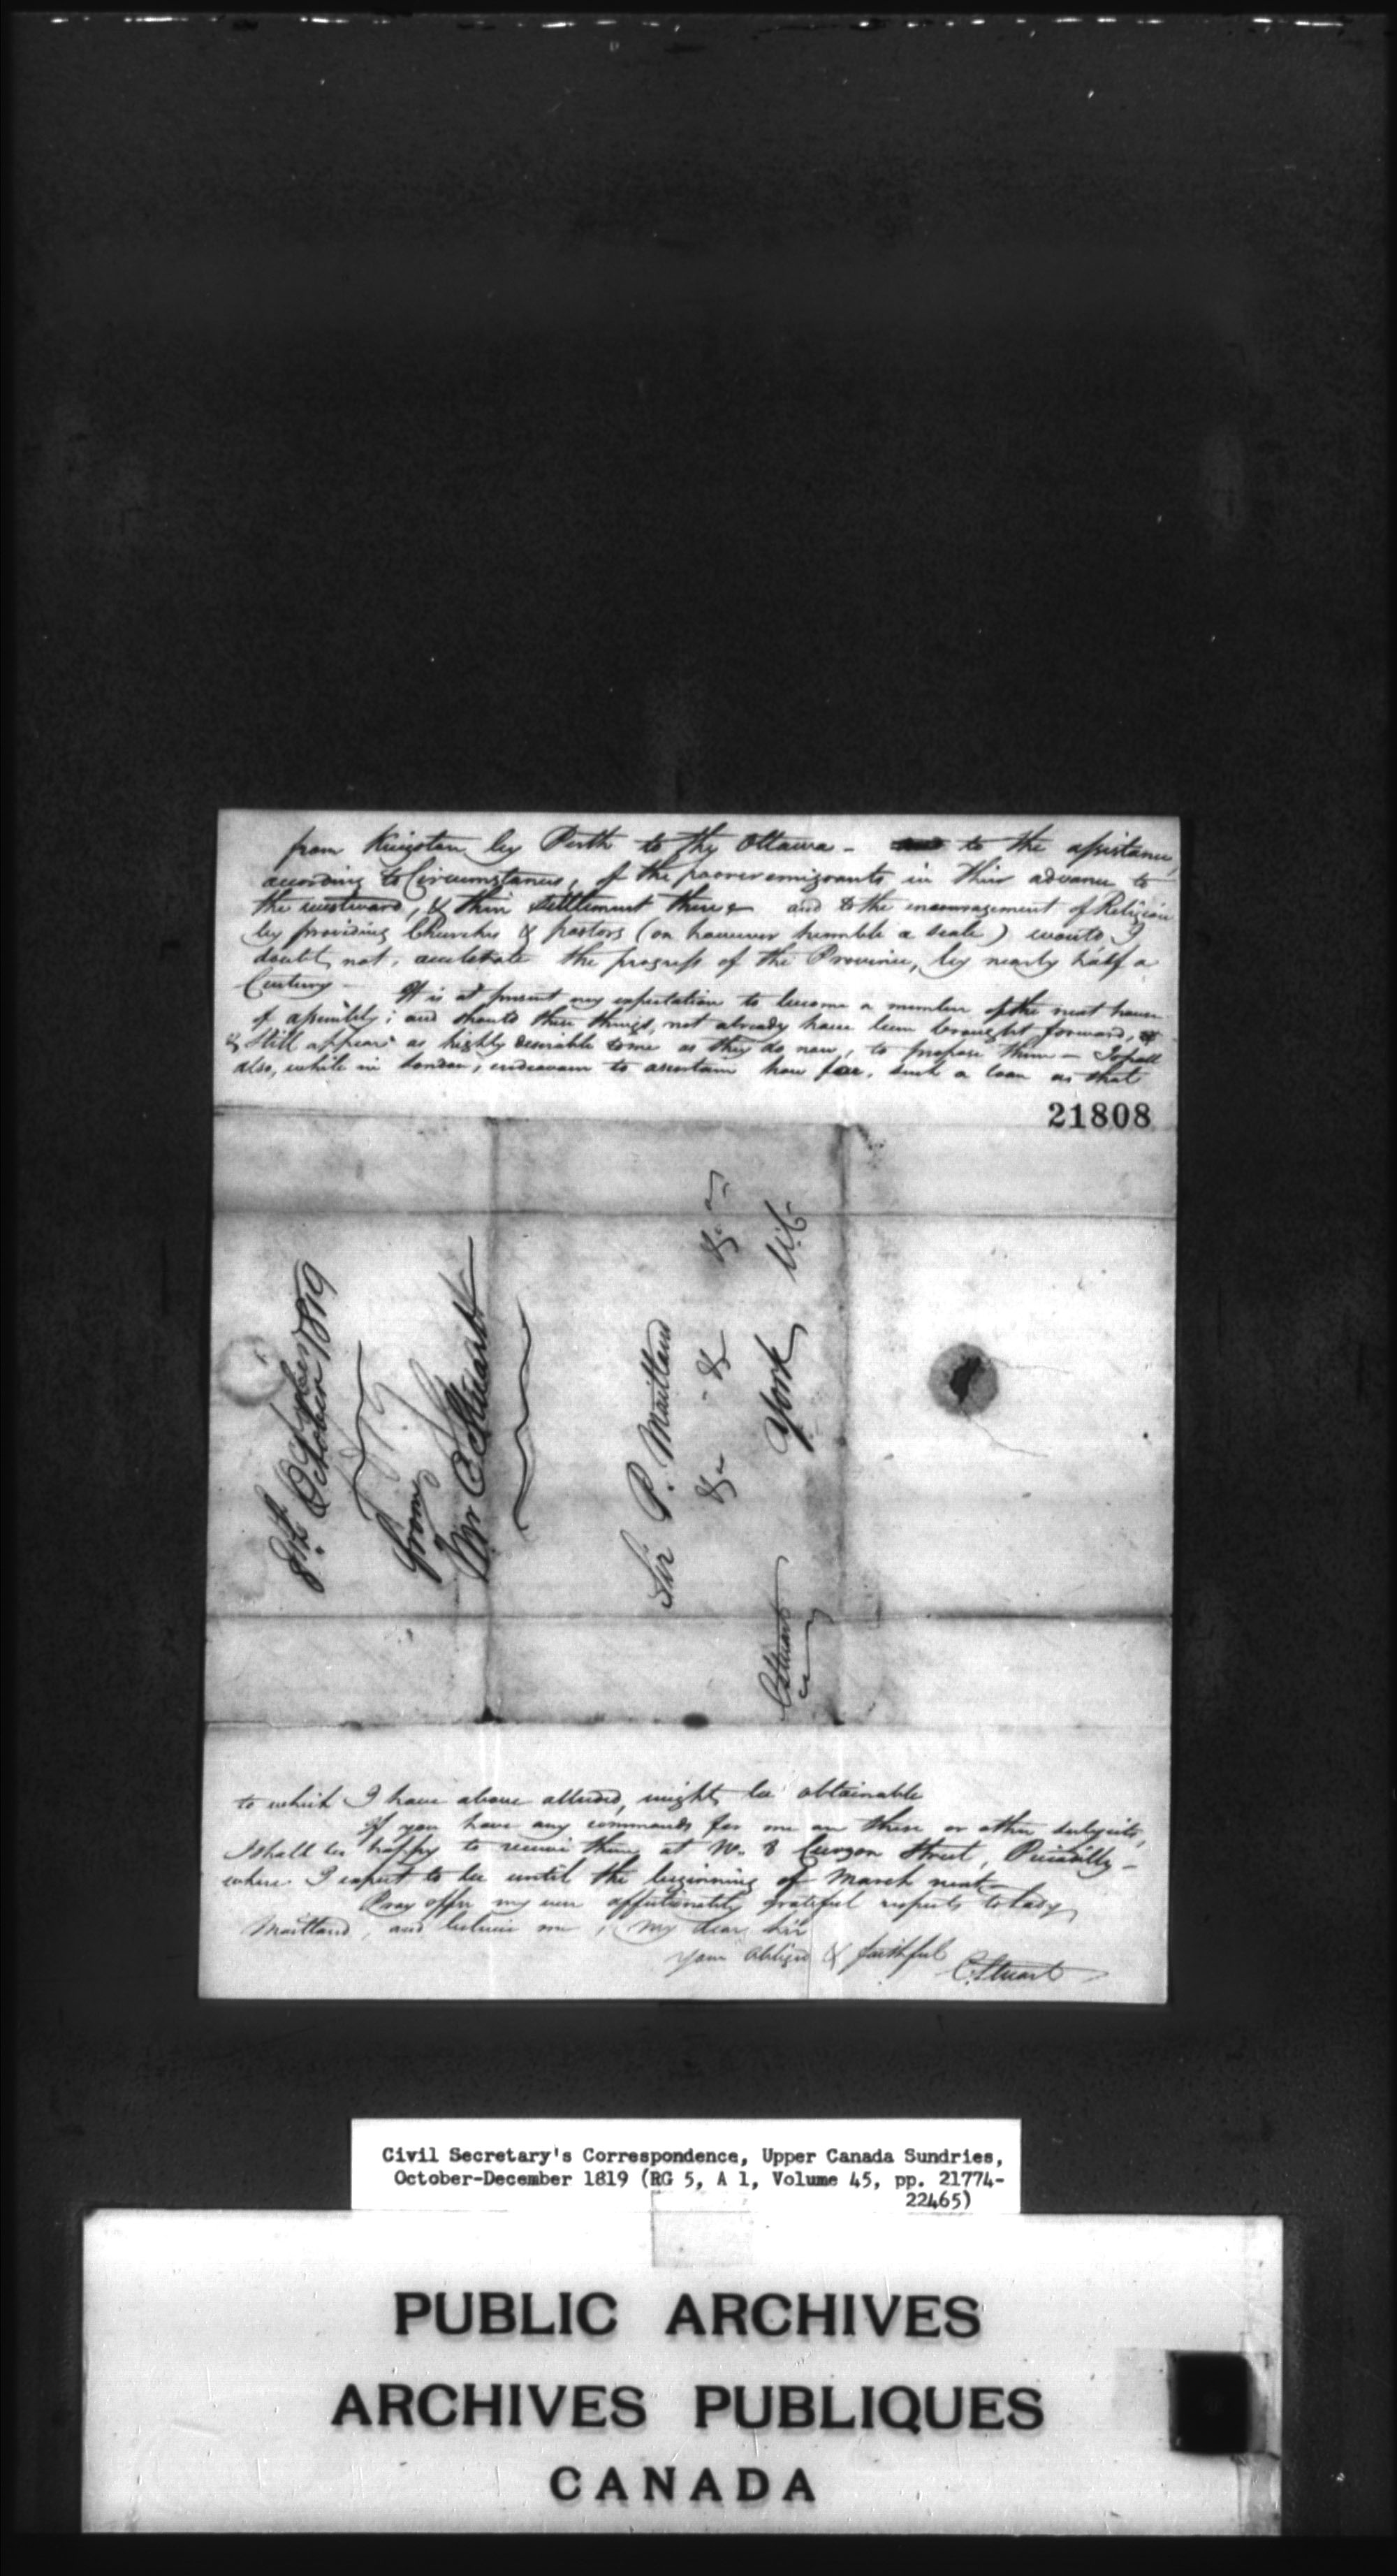 from Kingston by Perth to the Ottawa - to the assistance,
according to Circumstances, of the poorer emigrants in their advance to
the westward, & their settlement there & and to the encouragement of Religion
by providing Churches & pastors (on however humble a scale) would I
doubt not, accelerate the progress of the Province, by nearly half a
Century - It is at present my expectation to become a member of the next house
of assembly; and should these things, not already have been brought forward,
& Still appear as highly desirable to me as they do now, to propose them - I shall
also, while in London, endeavour to ascertain how far, such a loan as that
21808
8th October 1819
From
Mr C Stuart
Sir P. Maitland
&c - & - &c
York U.C.
C Stuart
to which I have above alluded, might be obtainable
If you have any commands for me on these or other subjects,
I shall be happy to receive them at No. 8 Curzon Street, Piccadilly -
where I expect to be until the beginning of March next -
Pray offer my ever affectionately grateful respects to Lady
Maitland, and believe me, My dear Sir
your obliged & faithful C. Stuart
Civil Secretary's Correspondence, Upper Canada Sundries,
October-December 1819 (RG 5, A 1, Volume 45, pp. 21774-
22465)
PUBLIC ARCHIVES
ARCHIVES PUBLIQUES
CANADA